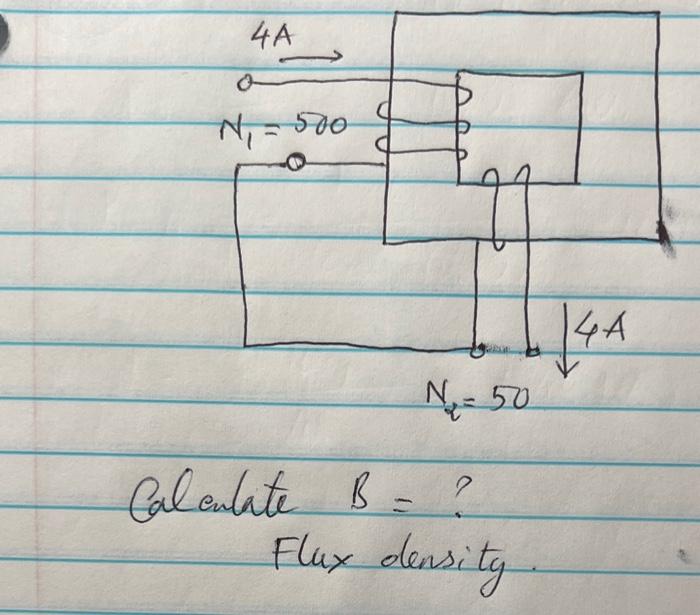 4A
N₁ = 500
4A
N₂ = 50
Calculate B = ?
Flux density.